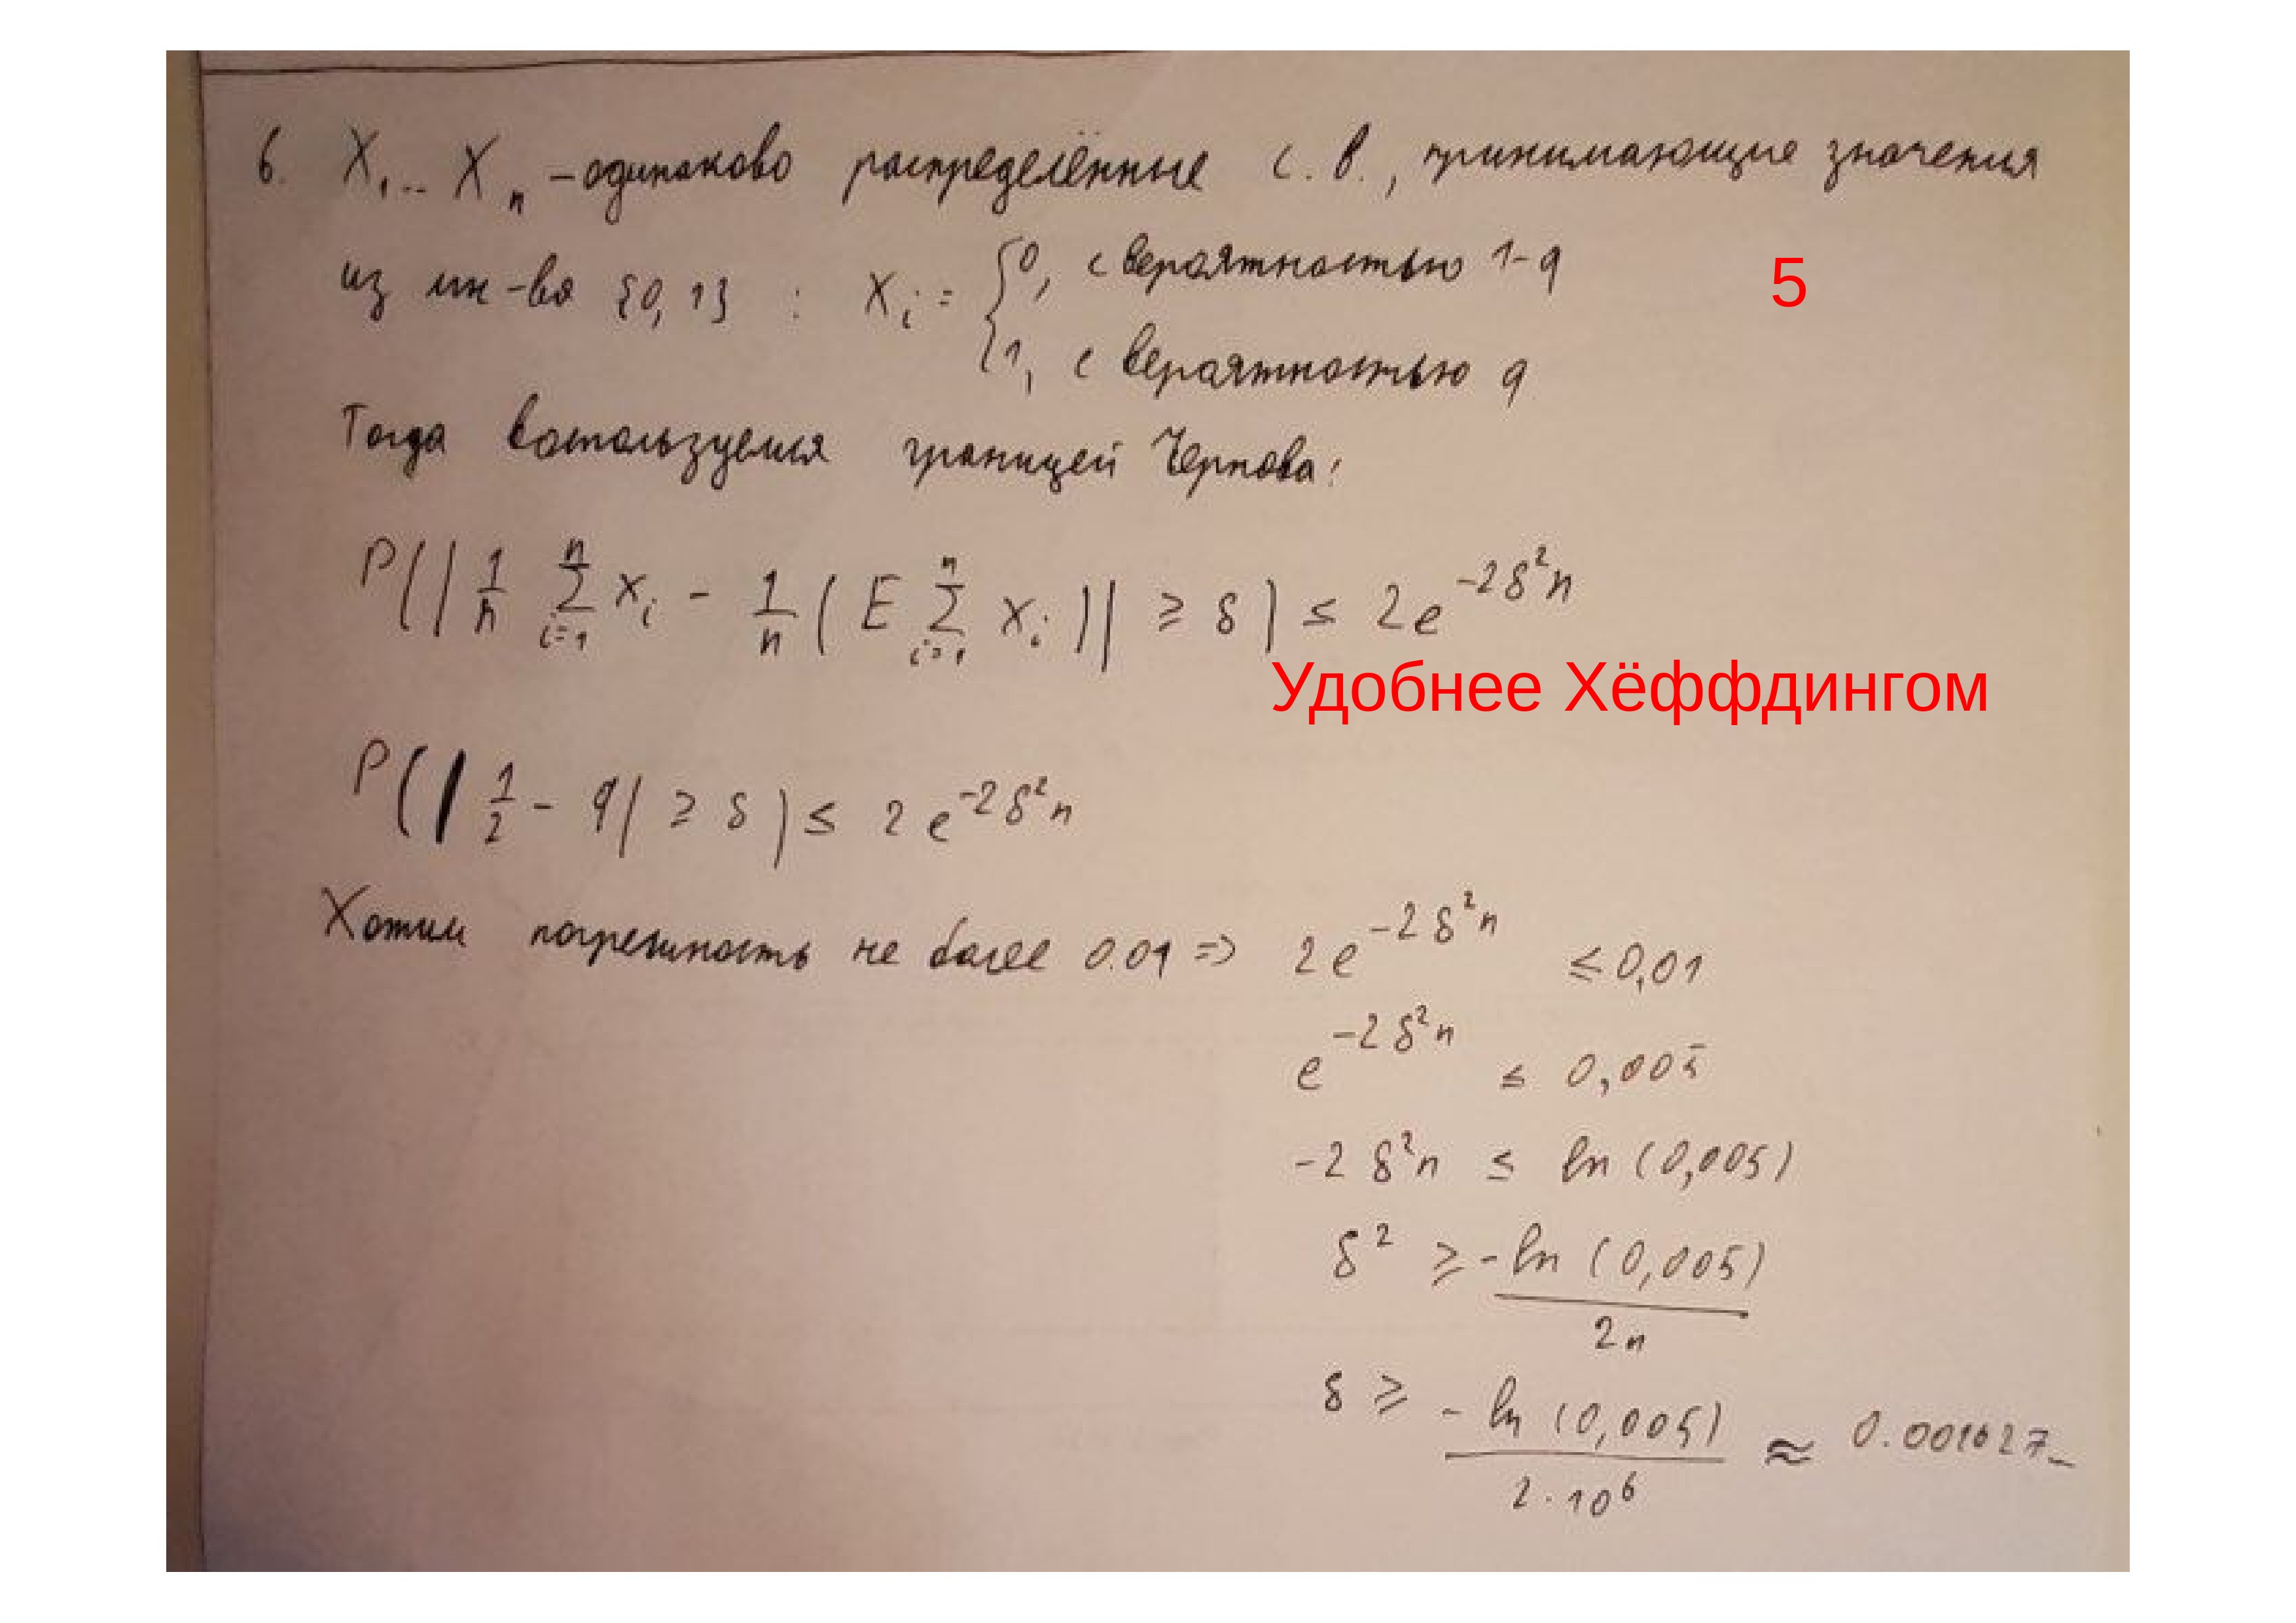 6. X₁.. Xₙ – одинаково распределённые с.в., принимающие значения
5
из мн-ва {0, 1} : Xᵢ = { 0, с вероятностью 1-q
1, с вероятностью q
Тогда воспользуемся границей Чернова:
P(| 1/n ∑ᵢ₌₁ⁿ xᵢ - 1/n (E ∑ᵢ₌₁ⁿ xᵢ)| ≥ δ) ≤ 2e^(-2δ²n)
Удобнее Хёффдингом
P(| 1/2 - q| ≥ δ) ≤ 2e^(-2δ²n)
Хотим погрешность не более 0.01 => 2e^(-2δ²n) ≤ 0,01
e^(-2δ²n) ≤ 0,005
-2δ²n ≤ ln(0,005)
δ² ≥ -ln(0,005) / 2n
δ ≥ -ln(0,005) / 2·10⁶ ≈ 0.001627..